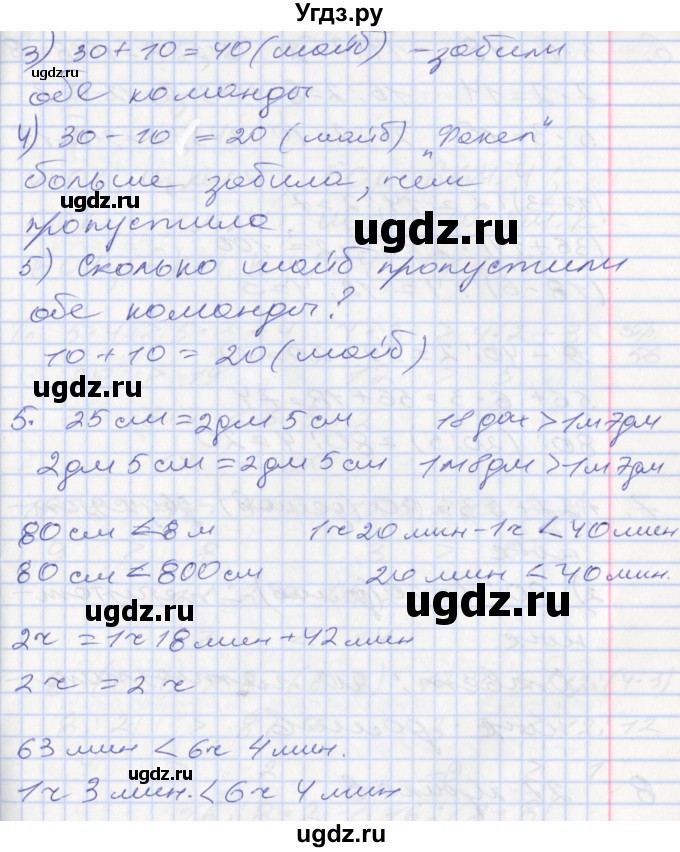 Угдз.ру
3) 30 + 10 = 40 (шайб) - забили
обе команды
4) 30 - 10 = 20 (шайб) "Факел"
больше забила, чем
пропустила.
5) Сколько шайб пропустили
обе команды?
10 + 10 = 20 (шайб)
5. 25 см = 2 дм 5 см 18 дм > 1 м 7 дм
2 дм 5 см = 2 дм 5 см 1 м 8 дм > 1 м 7 дм
80 см < 8 м 1 ч 20 мин - 1 ч < 40 мин
80 см < 800 см 20 мин < 40 мин.
2 ч = 1 ч 18 мин + 42 мин
2 ч = 2 ч
63 мин < 6 ч 4 мин.
1 ч 3 мин. < 6 ч 4 мин
ugdz.ru
ugdz.ru
ugdz.ru
ugdz.ru
ugdz.ru
ugdz.ru
ugdz.ru
ugdz.ru
ugdz.ru